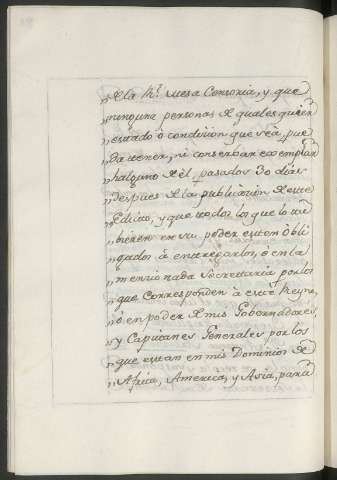 „de la Rl. mesa Censoria, y que
„ninguna personas de quales quier
„estado ò condicion que sea, pue
„da tener, ni conserbar exemplar
„halguno de èl, pasados 30 dias
„despues de la publicazion de este
„Edicto, y que todos los que lo tu
„bieren en su poder esten obli
„gados à entregarlos, ò en la
„mencionada Secretaria por los
„que corresponden à este Reyno,
„ò en poder de mis Gobernadores,
„y Capitanes Generales por los
„que estan en mis Dominios de
„Africa, America, y Asia, para